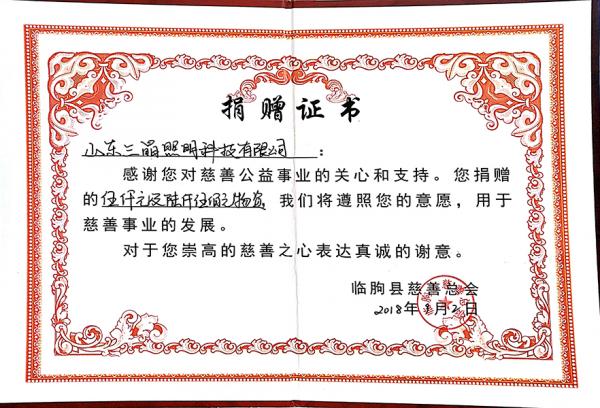 捐赠证书
山东三晶照明科技有限公司：
感谢您对慈善公益事业的关心和支持。您捐赠
的伍仟元及陆仟伍佰元物资 我们将遵照您的意愿，用于
慈善事业的发展。
对于您崇高的慈善之心表达真诚的谢意。
临朐县慈善总会
2018年8月21日